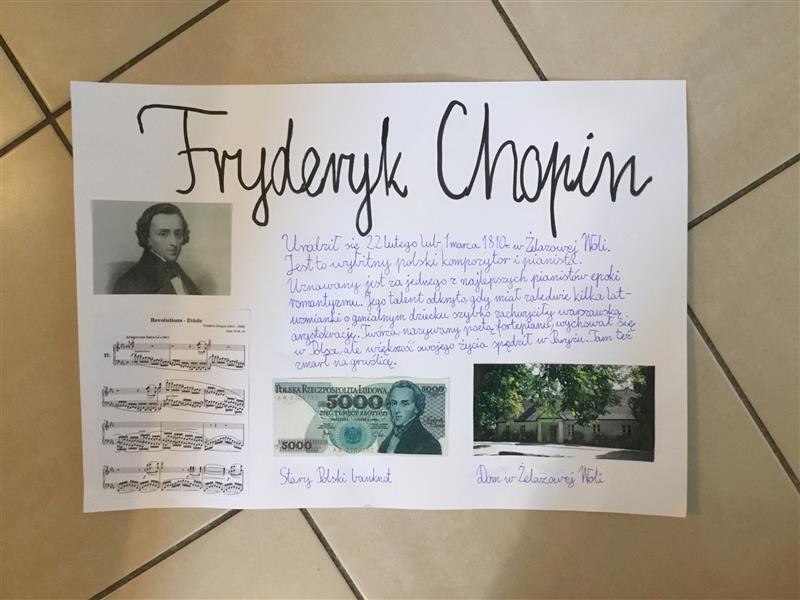 Fryderyk Chopin
Urodził się 22 lutego lub 1 marca 1810r. w Żelazowej Woli.
Jest to wybitny polski kompozytor i pianista.
Uznawany jest za jednego z najlepszych pianistów epoki
romantyzmu. Jego talent odkryto, gdy miał zaledwie kilka lat-
wzmianki o genialnym dziecku szybko zachwyciły warszawską
arystokrację. Twórca, nazywany poetą fortepianu, wychował się
w Polsce, ale większość swojego życia spędził w Paryżu. Tam też
zmarł na gruźlicę.
Revolutions - Etüde
12.
POLSKA RZECZPOSPOLITA LUDOWA
5000
5000
PIĘĆ TYSIĘCY ZŁOTYCH
5000
Stary Polski banknot
Dom w Żelazowej Woli